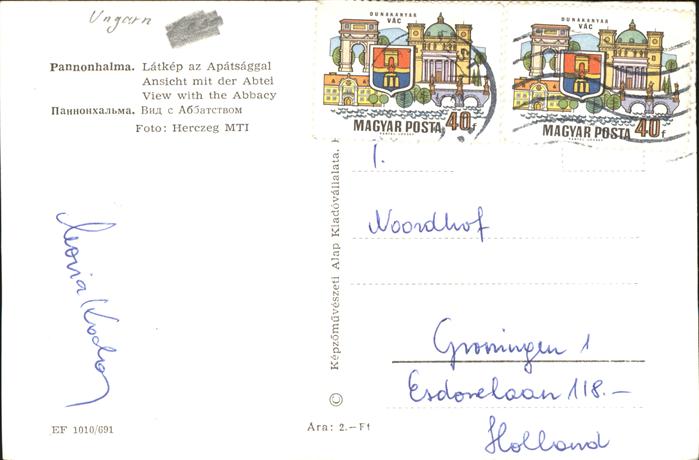 Ungarn
Pannonhalma. Látkép az Apátsággal
Ansicht mit der Abtel
View with the Abbacy
Паннонхальма. Вид с Аббатством
Foto: Herczeg MTI
DUNAKANYAR
VÁC
MAGYAR POSTA 40f
DUNAKANYAR
VÁC
MAGYAR POSTA 40f
I.
Noordhof
Groningen 1
Esdorelaan 118.-
Holland
© Képzőművészeti Alap Kiadóvállalata,
EF 1010/691
Ára: 2.- Ft